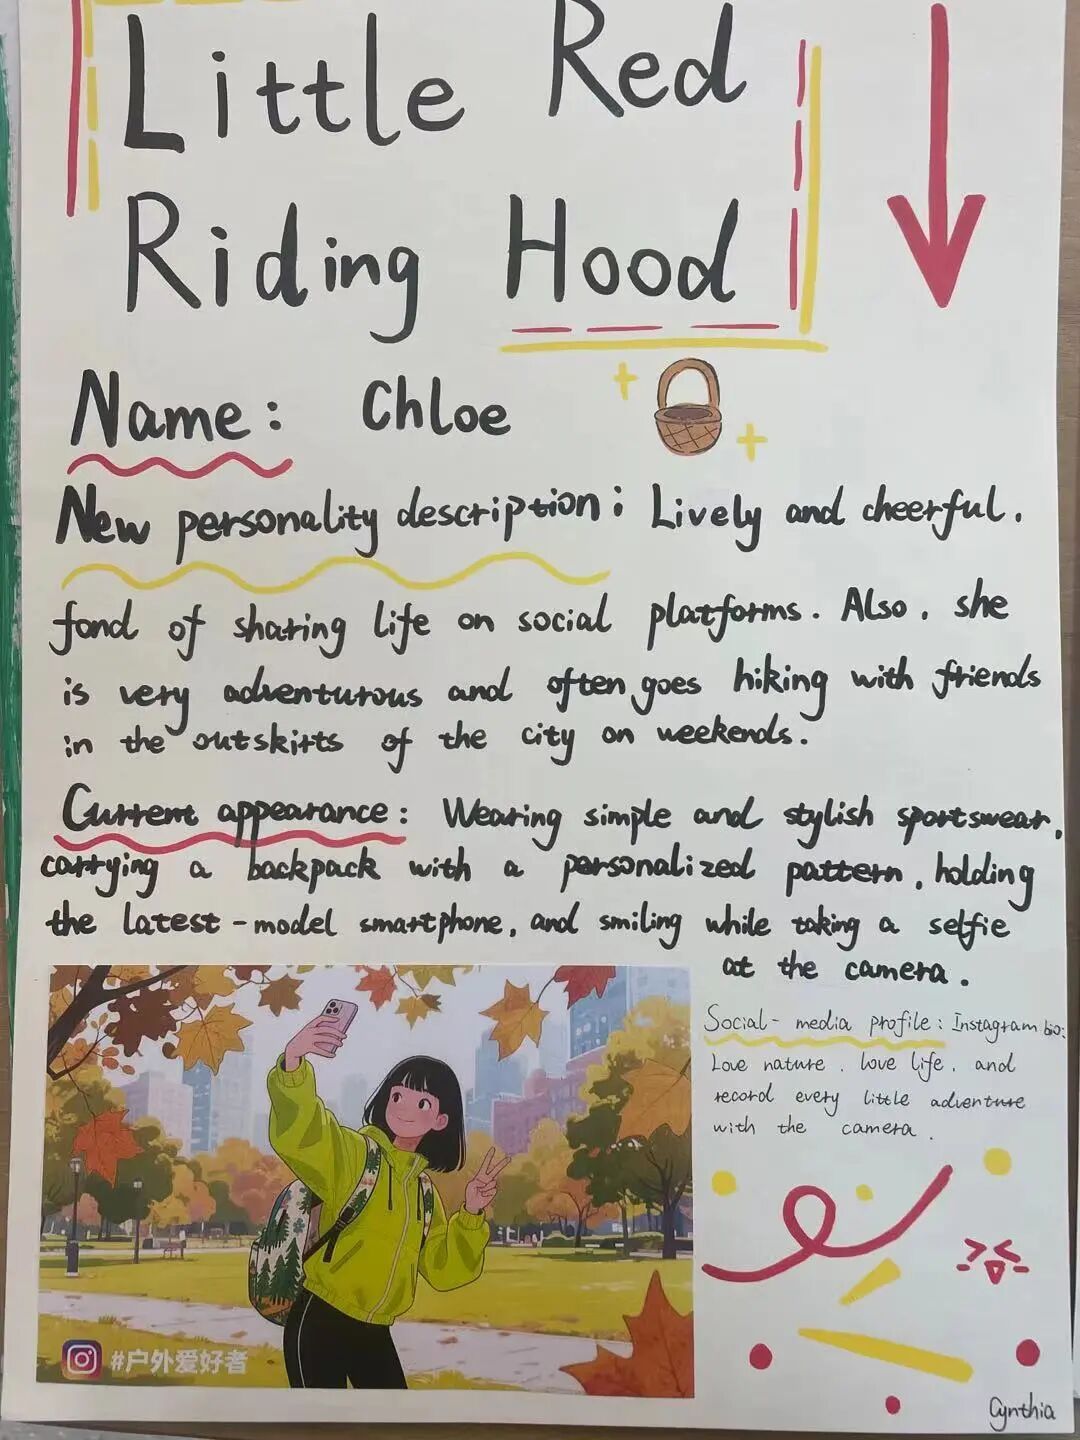 Little Red
Riding Hood
Name: Chloe
New personality description: Lively and cheerful.
fond of sharing life on social platforms. Also, she
is very adventurous and often goes hiking with friends
in the outskirts of the city on weekends.
Current appearance: Wearing simple and stylish sportswear,
carrying a backpack with a personalized pattern, holding
the latest-model smartphone, and smiling while taking a selfie
at the camera.
Social-media profile: Instagram bio:
Love nature, love life, and
record every little adventure
with the camera.
#户外爱好者
Cynthia